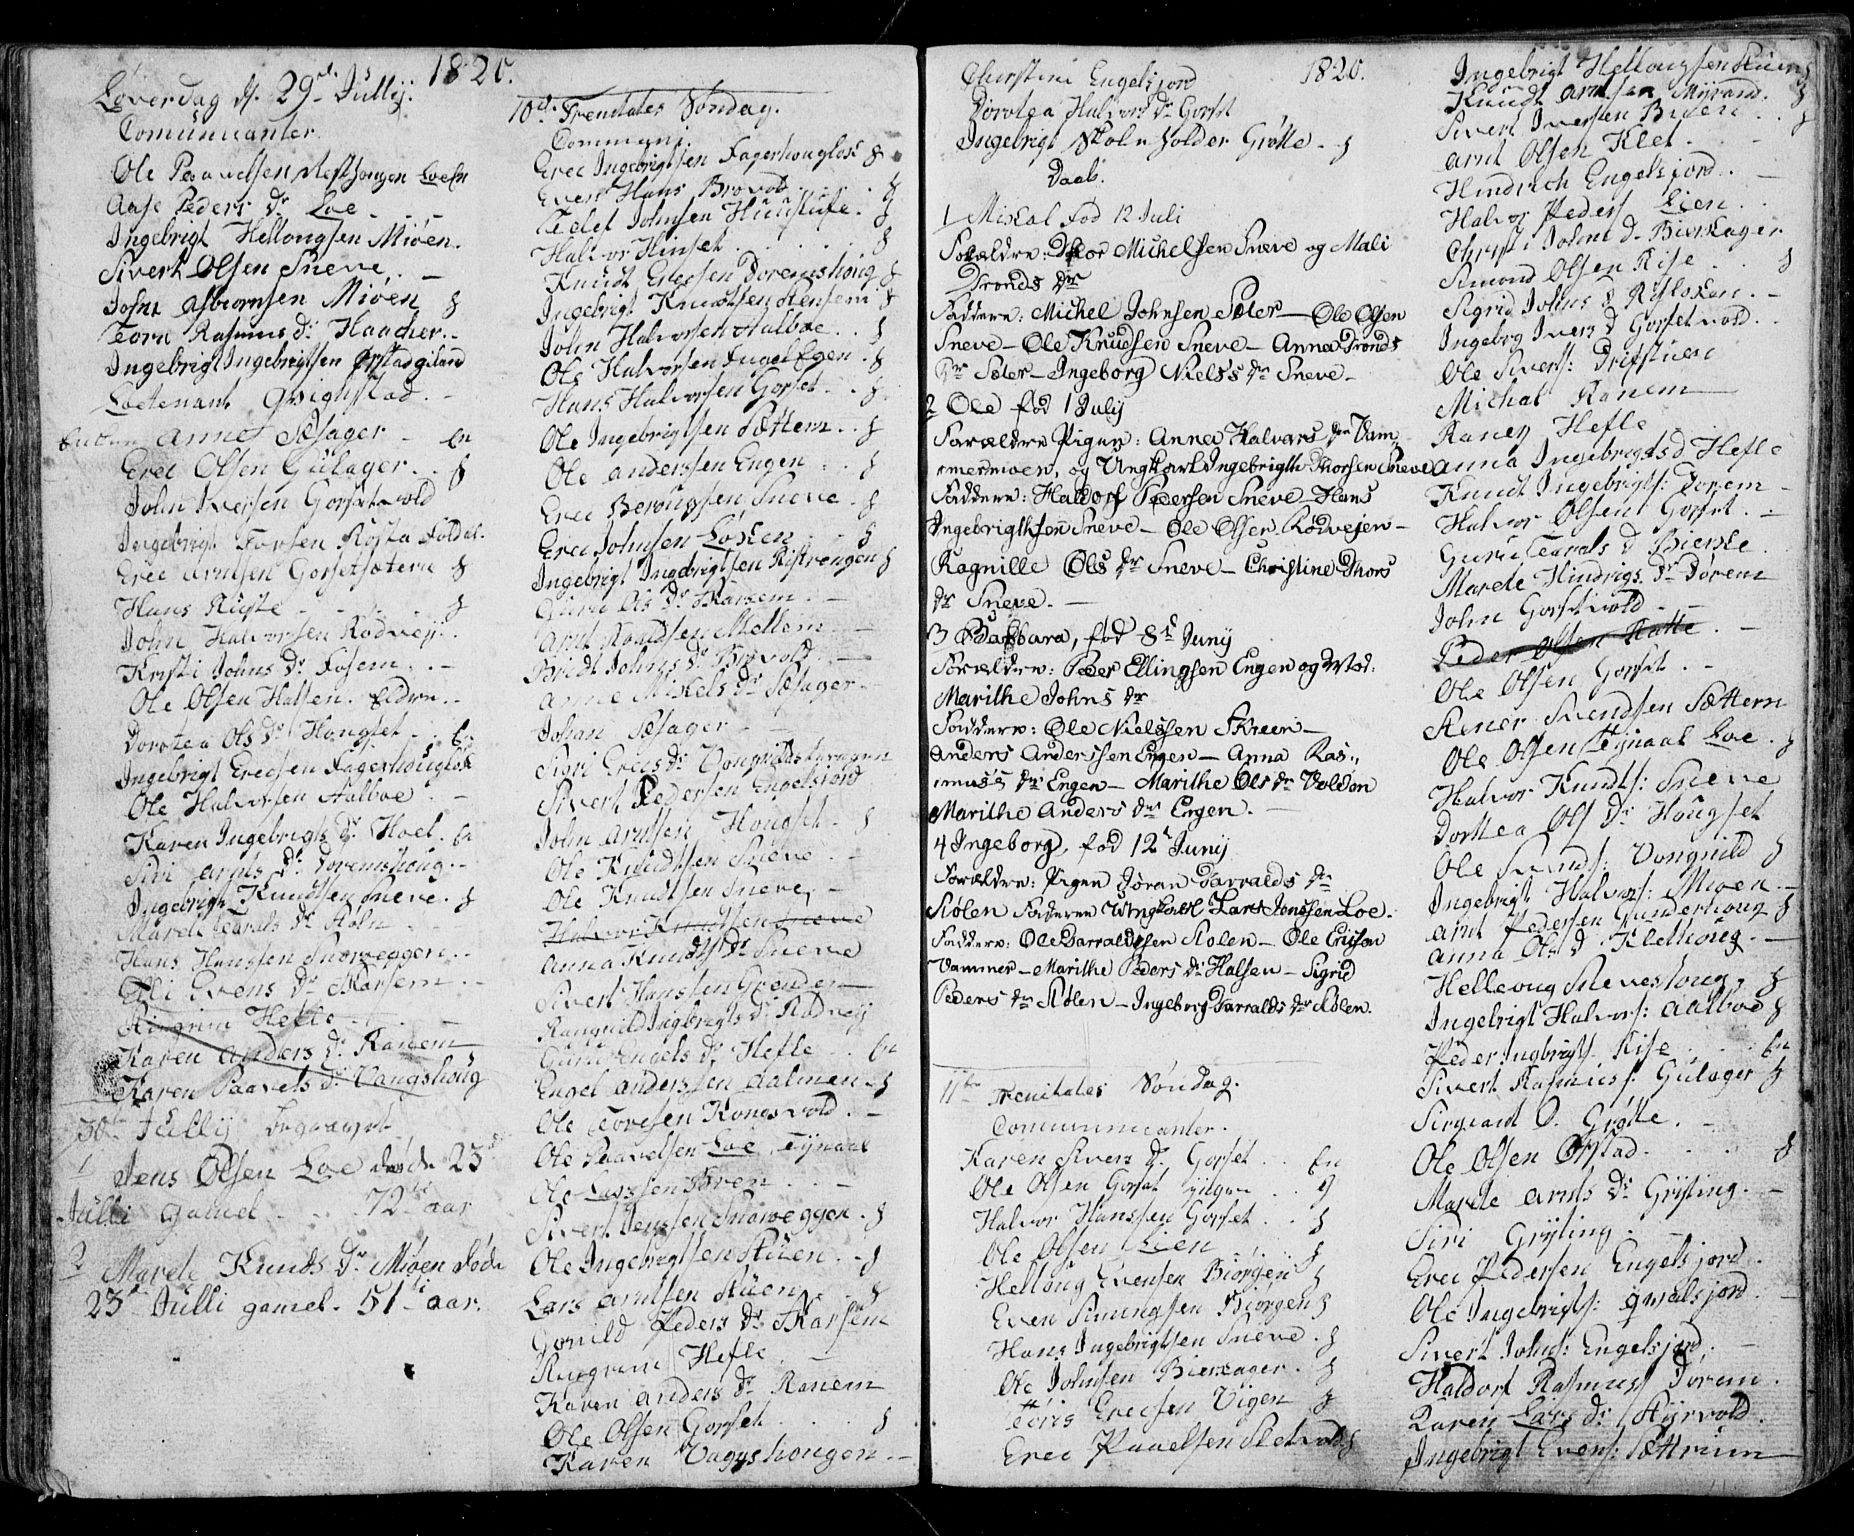 1820.
Løverdag d. 29de Jullij.
Comunicanter.
Ole Paavelsen Loe
Aase Peders Dr Loe
Ingebrigt Hellougsen Miøen.
Sivert Olsen Sneve
John Asbiørnsen Miøen
Rasmus Dr Haacher
Ingebrigt Ingebrigtsen
Loetenant Qvignstad
Anne Sæsager
Erec Olsen Gulager
John Iversen Gorsetvold
Ingebrigt Røsta Foldal
Erec Arntsen Gorsetsætern
Hans Riise
John Halvorsen Rødvej
Kristi Johns Dr Fosem
Ole Olsen Halsen
Dorotea Ols Dr Hougset
Ingebrigt Erecsen Fagerhougløk
Ole Halvorsen Aalboe
Karen Ingebrigts Dr Hoel
Siri Arnts Dr Doremshoug
Ingebrigt Knudtsen Sneve
Marett Taralds Dr Støln
Hans Hanssen Snoweggen
Evens Dr Skarsem
Hefle
Karen Anders Dr Ranem
Karen Paavels Dr Vangshoug
30te Jullij begravet
1 Jens Olsen Loe døde 23de
Julli gamel 72de aar
2 Marete Knuds Dr Miøen døde
23de Julli gamel 51de aar.
10de Trenitates Søndag.
Communi.
Erec Ingebrigtsen Fagerhougløk
Even Hans Brøvold
Tedel Johnsen Huustufe
Halvor Hinset
Knudt Erecsen Doremshoug
Ingebrigt Knudtsen Stensem
John Halvorsen Aalboe
Ole Halvorsen Engen
Hans Halvorsen Gorset
Ole Ingebrigtsen Sættem
Ole Anderssen Engen
Erec Berougsen Sneve
Erec Johnsen Løkken
Ingebrigt Ingebrigtsen Ristrengen
Guru Ols Dr Skarsem
Arnt Knudtsen Mellem
Beridt Johns Dr Brøvold
Anne Mikels Dr Sæsager
Johan Sæsager
Sigri Erecs Dr
Sivert Pedersen Engelsjord
John Arntsen Hougset
Ole Knudtsen Sneve
Ole Knudtsen Sneve
Halvor Knudtsen Sneve
Anna Knudts Dr Sneve
Sivert Hanssen Grenden
Ranquild Ingbregts Dr Rødvej
Guru Engels Dr Hefle
Engel Anderssen Aalmen
Ole Toresen Kongsvold
Ole Paavelsen Loe Tynaal
Ole Larssen Støren
Sivert Jenssen Snoweggen
Ole Ingebrigtsen Stuen
Lars Arntsen Stuen
Gonild Peders Dr Skarsem
Hefle
Karen Anders Dr Ranem
Ole Olsen Gorset
Karen Vagshougen
Christine Engelsjord
1820.
Dorotea Halvors Dr Gorset
Ingebrigt Skoleholder Grøtte
Daab.
1 Mikal fød 12 Juli
Forældre: Thor Michelsen Sneve og Mali
Tronds Dr
Faddere: Michel Johnsen Sæter – Ole Olsen
Sneve – Ole Knudsen Sneve – Anna Tronds
Dr Sæter – Ingeborg Niels's Dr Sneve –
2 Ole fød 1 July
Forældre Pigen: Anna Halvors Dr Vam-
mermoen, og Ungkarl Ingebrigth Thorsen Sneve
Faddere: Haldorf Pedersen Sneve – Hans
Ingebrigthsen Sneve – Ole Olsen Rødvejen –
Ragnille Ols Dr Sneve – Christine Thors
Dr Sneve. –
3 Barbara, fød 8de Junij
Forældre: Peder Ellingsen Engen og Mod:
Marithe Johns Dr
Faddere: Ole Nielssen Skreen –
Anders Anderssen Engen – Anna Ras-
muss Dr Engen – Marithe Ols Dr Volden
Marithe Anders Dr Engen. –
4 Ingeborg, fød 12te Junij
Forældre: Pigen Jøran Tarralds Dr
Stølen Faderen Ungkarl Lars Jenssen Loe.
Faddere: Ole Tarraldssen Stølen – Ole Ericson
Vammer – Marithe Peders Dr Halsen – Sigrid
Peders Dr Stølen – Ingeborg Tarralds Dr Stølen.
11te Trenitates Søndag.
Communicanter.
Karen Sivers Dr Gorset
Ole Olsen Gorset yngre
Halvor Hanssen Gorset
Ole Olsen Lien
Helloug Evensen Biørgen
Even Simingsen Biørgen
Hans Ingebrigtsen Sneve
Ole Johnsen Bierkager
Tøris Erecsen Viigen
Erec Paavelsen Sletvold
Ingebrigt Hellougsen Stuen
Knudt Arntsen Myrand
Sivert Iversen Buen
Arnt Olsen Klet
Hindrich Engelsjord
Halvor Peders Lien
Christi Johns D Bierkager
Simond Olsen Rise
Sigrid Johns D Rishoken
Ingeborg Ivers D Gorsetvold
Ole Sivers: Drifstuen
Michal Ranem
Raney Hefle
Anna Ingebrigts D Hefle
Knudt Ingebrigts: Dorem
Halvor Olsen Gorset
Guru Taralds D Bierke
Marete Hindrigs Dr Dørem
John Gorsetvold
Peder Olsen Ratte
Ole Olsen Gorset
Stener Svendsen Sættem
Ole Olsen Tynaal Loe
Halvor Knudts: Sneve
Dorttea Ols Dr Hougset
Ole Svends: Vongnild
Ingebrigt Halvors: Miøen
Arnt Pedersen Gunderhoug
Anna Ols D Klethoug
Helleoug Sneveshoug
Ingebrigt Halvors: Aalboe
Peder Ingbrigts Rise
Sivert Rasmuss: Gulager
Sirgeant O. Grøtte
Ole Olsen Ørstad
Marete Arnts Dr Gryting
Siri Gryting
Erec Pedersen Engelsjord
Ole Ingebrigts: Qvalsjord
Sivert Johns: Engelsjord
Haldorf Rasmuss Dorem
Karen Lars Dr Styrvold
Ingebrigt Evens: Sættrum